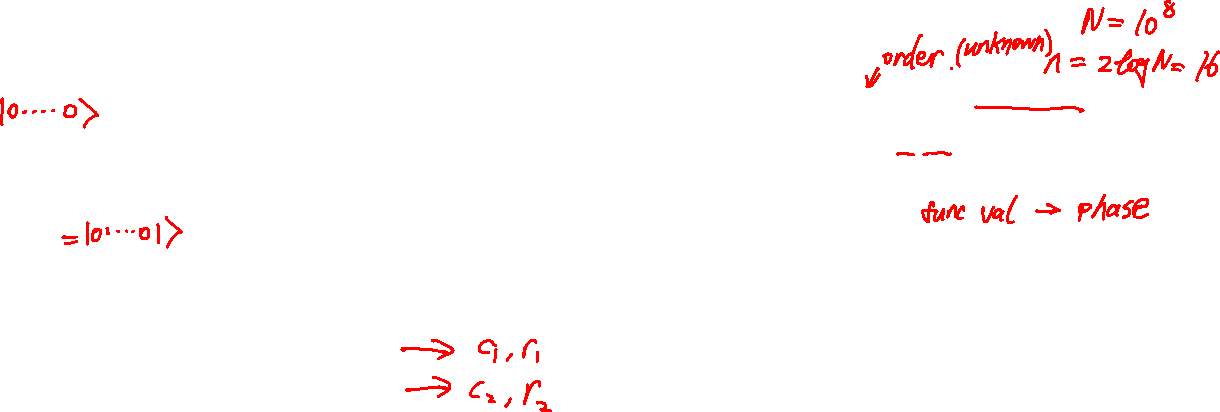 N = 10⁸
order. (unknown)
n = 2 log N = 16
|0 ⋯ 0⟩
func val → phase
= |0 ⋯ 01⟩
→ c₁, r₁
→ c₂, r₂